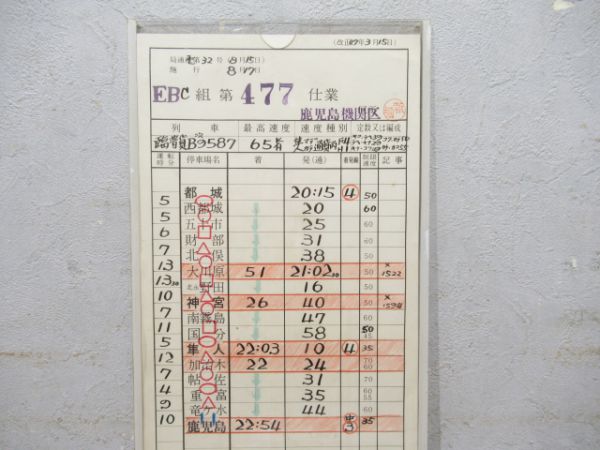 (改正47年3月15日)
局達 第32号 (8月15日)
施行 8月17日
EBC 組 第 477 仕業
鹿児島機関区
列車 最高速度 速度種別 定数又は編成
9587 65
運転時分 停車場名 着 発(通) 着発線 制限速度 記事
都城 20:15 4 50
5 西都城 ↓ 20 60
5 五十市 ↓ 25 60
6 財部 ↓ 31 60
7 北俣 ↓ 38 60
13 大川原 51 21:02 50 × 1522
13 北永野田 ↓ 16 50
10 神宮 26 40 50 ×
7 南霧島 ↓ 47 60
11 国分 ↓ 58 50
5 隼人 22:03 10 4 35
12 加治木 22 24 70 60
7 帖佐 ↓ 31 70
4 重富 ↓ 35 60 55
9 竜ケ水 ↓ 44 60
10 鹿児島 22:54 中 35